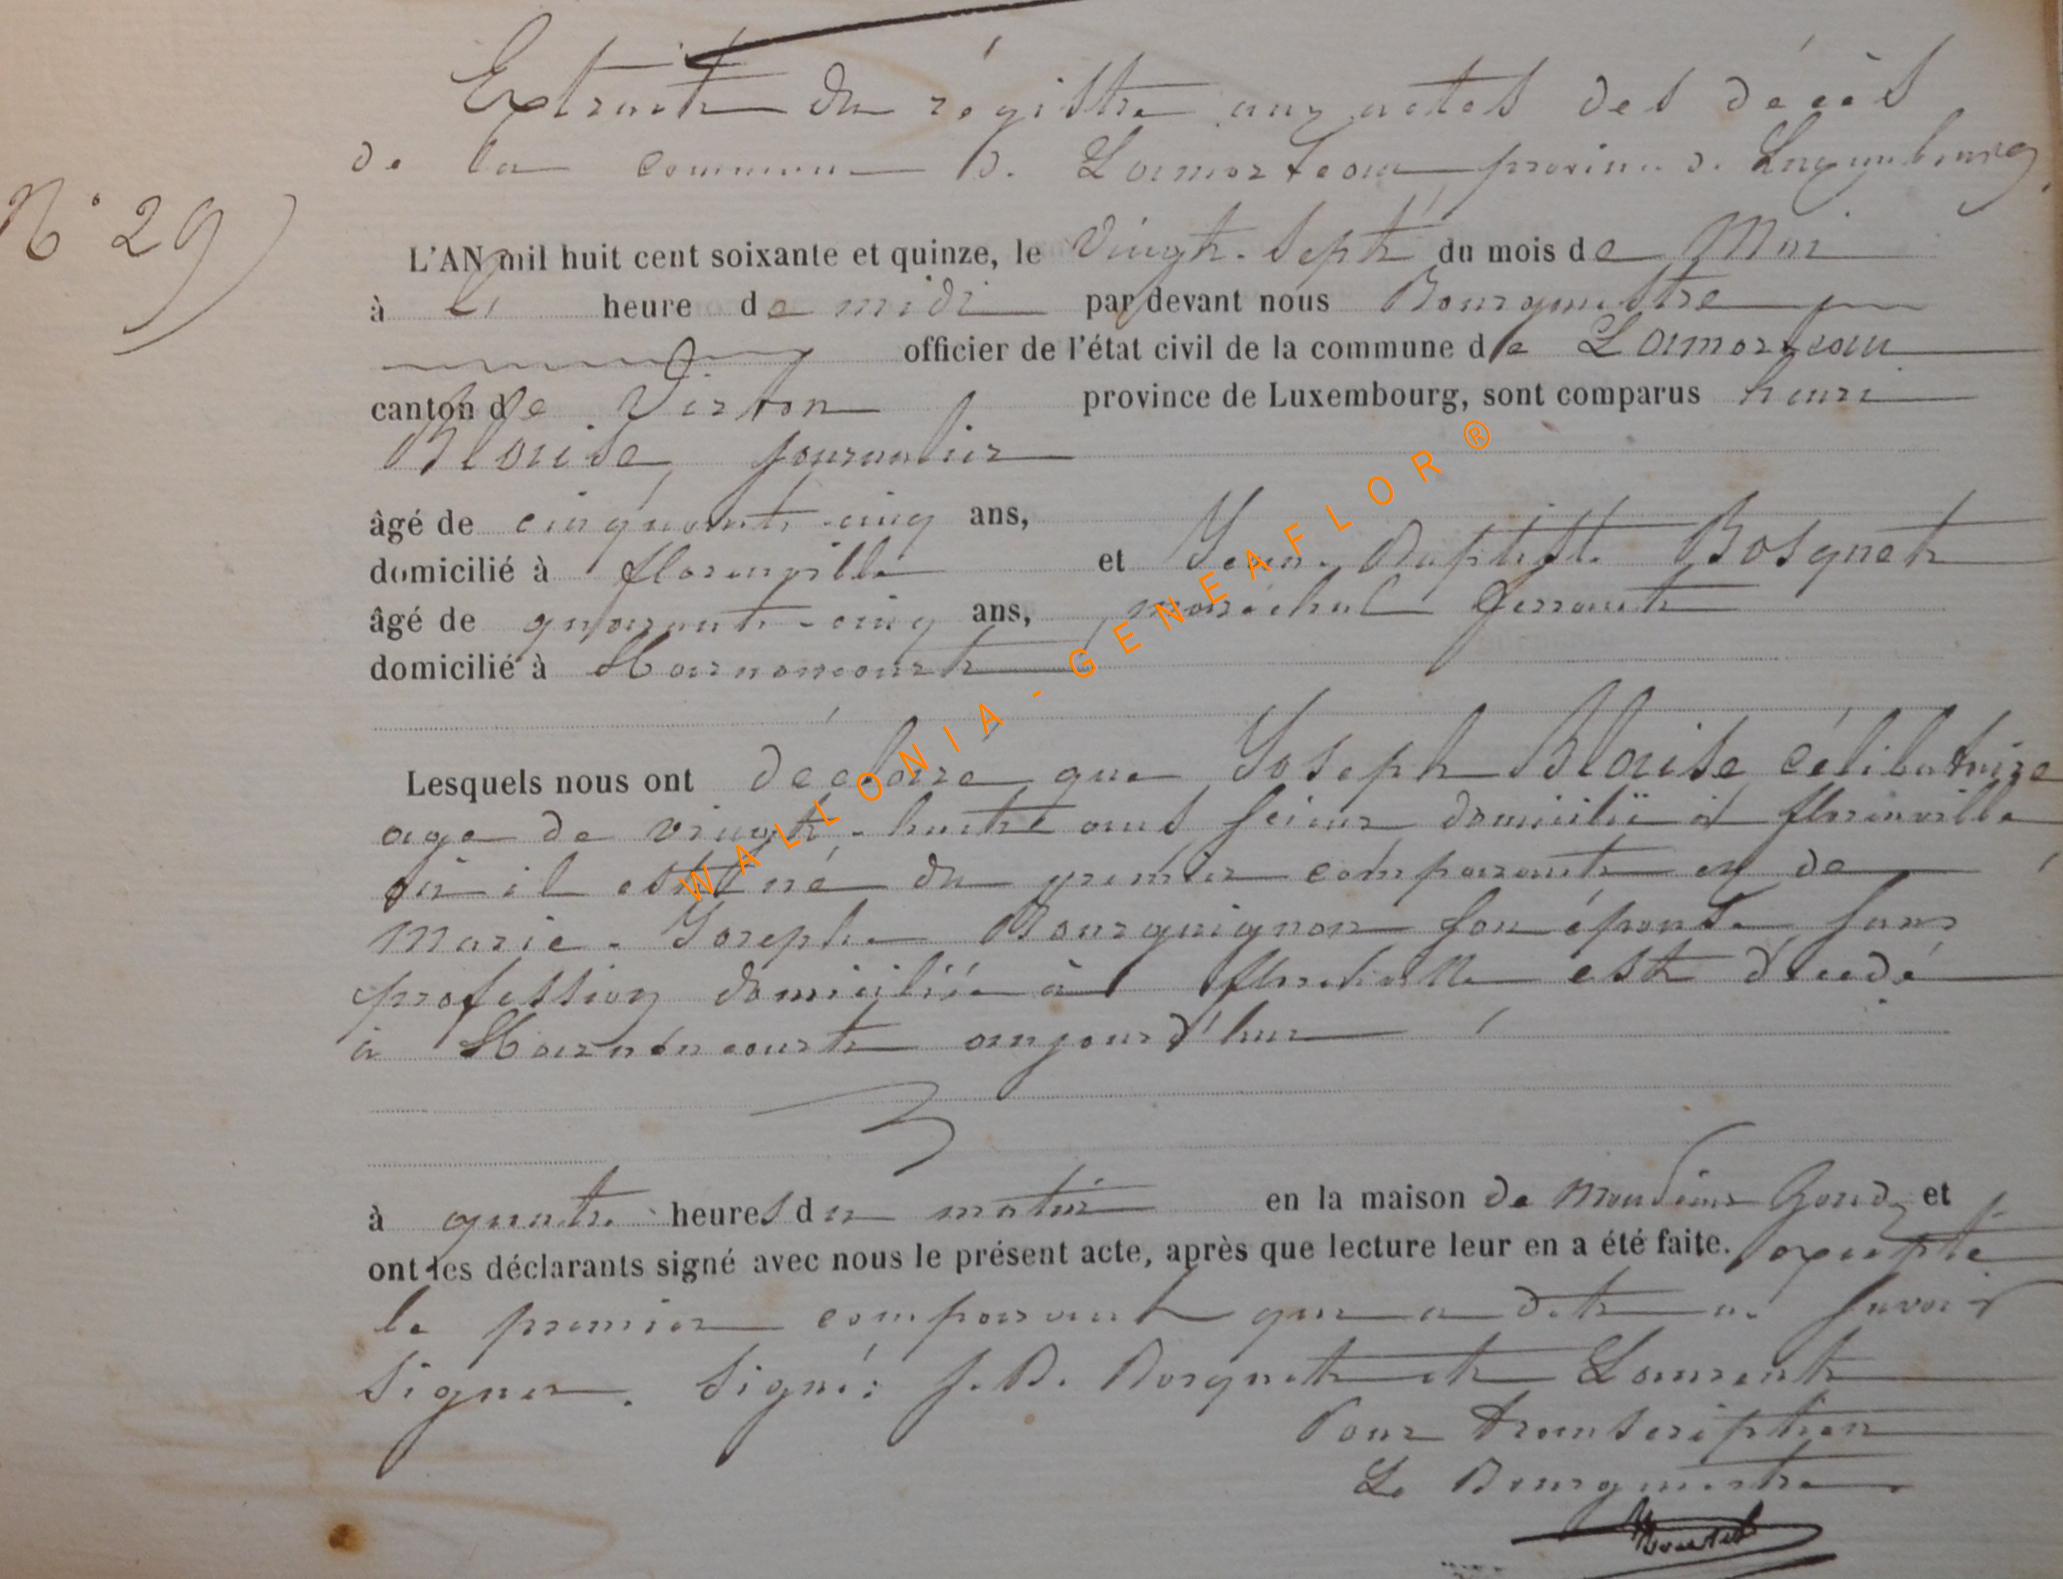 Extrait du régistre aux actes des décès
de la commune de Lamorteau province de Luxembourg.
N° 29
L'AN mil huit cent soixante et quinze, le vingt-sept du mois de Mai
à heure de midi par devant nous Bourgmestre
officier de l'état civil de la commune de Lamorteau
canton de Virton province de Luxembourg, sont comparus henri
Blaise, journalier
âgé de cinquante-cinq ans,
domicilié à florenville et Jean-Baptiste Bosquet
âgé de quarante-cinq ans, maréchal ferrant
domicilié à Harnoncourt
Lesquels nous ont déclaré que Joseph Blaise célibataire
age de vingt-huit ans domicilié à florenville
où il est né du premier comparant et de
Marie-Josephe Bourguignon son épouse sans
profession domiciliée à est décédé
à Harnoncourt aujourd'hui
à quatre heures du matin en la maison de monsieur et
ont les déclarants signé avec nous le présent acte, après que lecture leur en a été faite. excepté
le premier comparant qui a dit ne savoir
signer. Signé: J. B. Bosquet et Laurent
Pour transcription
Le Bourgmestre
WALLONIA-GENEAFLOR®